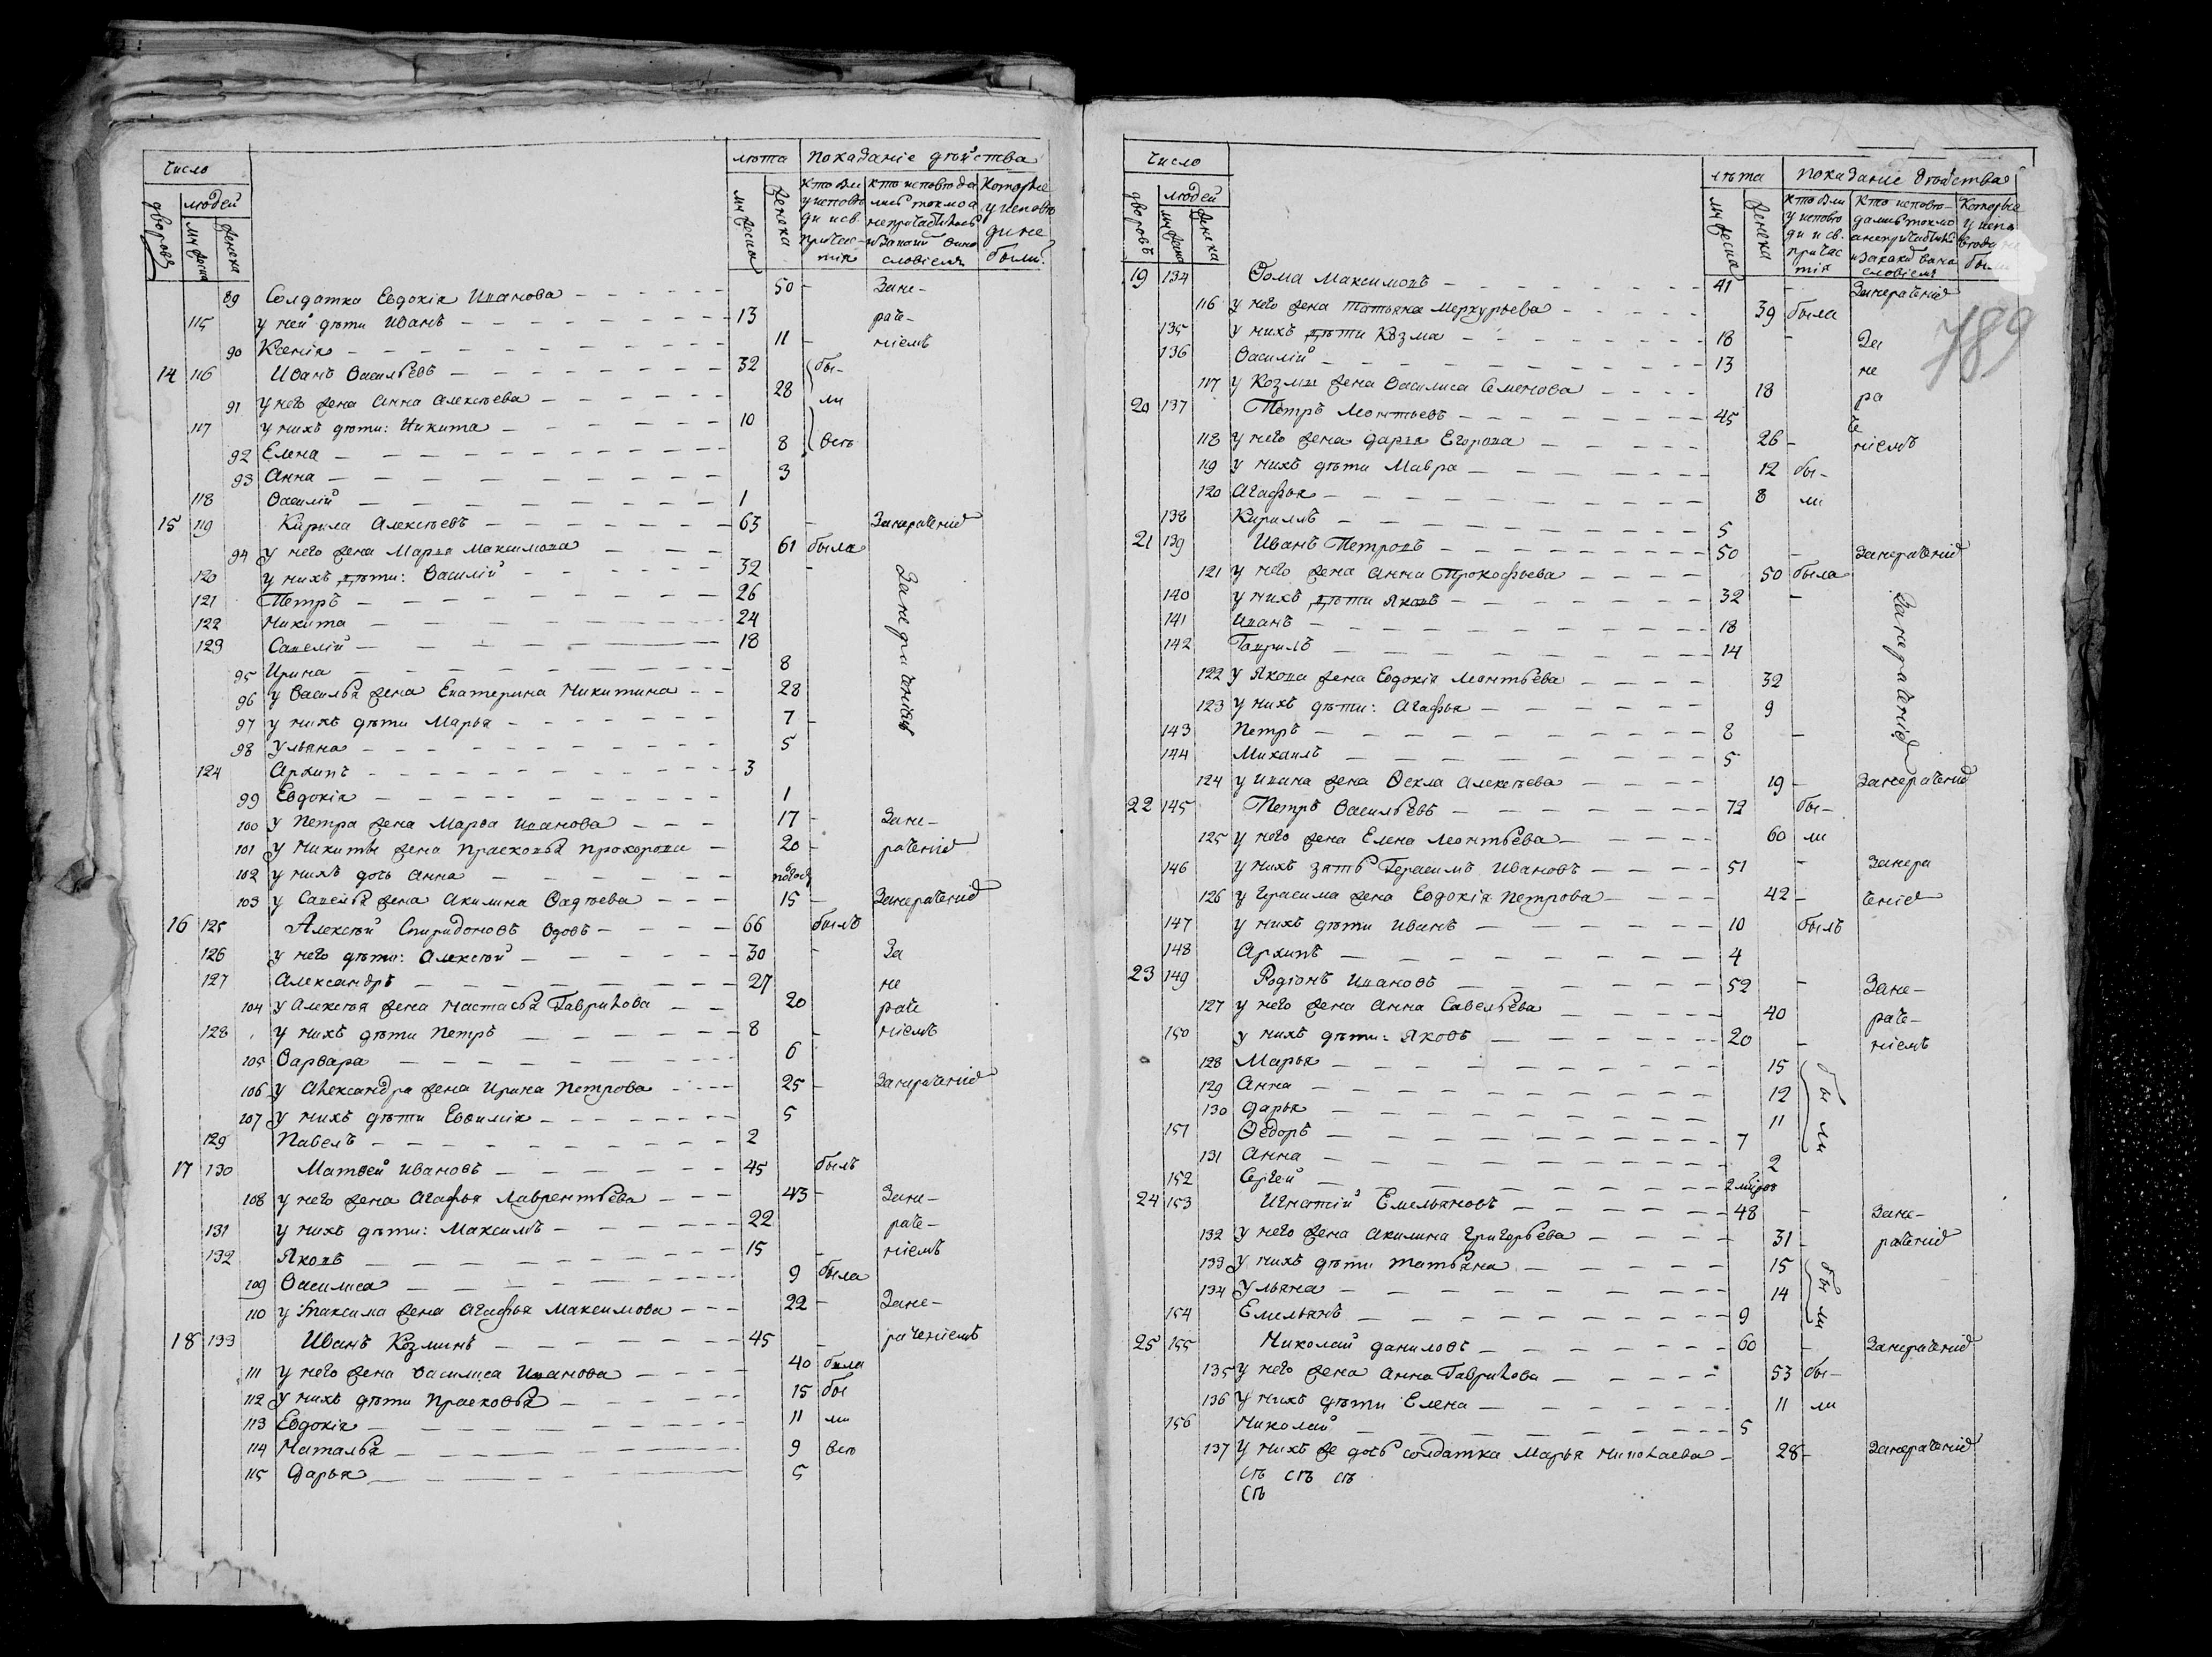 Число
лѣта показаніе дѣйства
людей
дворовъ
муж. пола
женска
муж. пола
женска
кто были у исповѣди и св. причастія
кто исповѣдались токмо а не причастились и за какой виной словіемъ
Которые у исповѣди не были.
89 Солдатка Евдокія Иванова 50 - Зане-
115 у ней дѣти Иванъ 13 раче-
90 Ксенія 11 - ніемъ
14 116 Иванъ Васильевъ 32 бы-
91 у него жена Анна Алексѣева 28 ли
117 у нихъ дѣти: Никита 10
92 Елена 8 всѣ
93 Анна 3
118 Василій 1
15 119 Кирила Алексѣевъ 63 - Занераченіе
94 у него жена Марѳа Максимова 61 была
120 у нихъ дѣти: Василій 32 -
121 Петръ 26
122 Никита 24
123 Савелій 18
Занераченіемъ
95 Ирина 8
96 у Василья жена Екатерина Никитина 28
97 у нихъ дѣти Марья 7 -
98 Ульяна 5
124 Архипъ 3
99 Евдокія 1
100 у Петра жена Марѳа Иванова 17 - Зане-
101 у Никиты жена Прасковья Прохорова 20 - раченіе
102 у нихъ дочь Анна полгод
103 у Савелья жена Акилина Фадѣева 15 - Занераченіе
16 125 Алексѣй Спиридоновъ вдовъ 66 былъ
126 у него дѣти: Алексѣй 30 - За
127 Александръ 27 не
104 у Алексѣя жена Настасья Гаврилова 20 раче
128 у нихъ дѣти Петръ 8 - ніемъ
105 Варвара 6
106 у Александра жена Ирина Петрова 25 - Занераченіе
107 у нихъ дѣти Евѳимія 5
129 Павелъ 2
17 130 Матвей Ивановъ 45 былъ
108 у него жена Агафья Лаврентьева 43 - Зане-
131 у нихъ дѣти: Максимъ 22 раче-
132 Яковъ 15 - ніемъ
109 Василиса 9 была
110 у Максима жена Агафья Максимова 22 - Зане-
18 133 Иванъ Козминъ 45 - раченіемъ
111 у него жена Василиса Иванова 40 была
112 у нихъ дѣти Прасковья 15 бы
113 Евдокія 11 ли
114 Наталья 9 всѣ
115 Дарья 5
Число
лѣта показаніе дѣйства
людей
дворовъ
муж. пола
женска
муж. пола
женска
кто были у исповѣди и св. причастія
Кто исповѣдались токмо а не причастились и за какой вина словіемъ
Которые у исповѣди не были
789
19 134 Ѳома Максимовъ 41 - Занераченіе
116 у него жена Татьяна Меркурьева 39 была
135 у нихъ дѣти Козма 18 - За
136 Василій 13 не
117 у Козмы жена Василиса Семенова 18 ра
20 137 Петръ Леонтьевъ 45 че
118 у него жена Дарья Егорова 26 - ніемъ
119 у нихъ дѣти Мавра 12 бы-
120 Агафья 8 ли
138 Кириллъ 5
21 139 Иванъ Петровъ 50 - Занераченіе
121 у него жена Анна Прокофьева 50 была
140 у нихъ дѣти Яковъ 32 -
141 Иванъ 18
142 Гаврилъ 14
Занераченіе
122 у Якова жена Евдокія Леонтьева 32
123 у нихъ дѣти: Агафья 9
143 Петръ 8 -
144 Михаилъ 5
124 у Ивана жена Ѳекла Алексѣева 19 - Занераченіе
22 145 Петръ Васильевъ 72 бы-
125 у него жена Елена Леонтьева 60 ли
146 у нихъ зять Герасимъ Ивановъ 51 - Занера
126 у Герасима жена Евдокія Петрова 42 - ченіе
147 у нихъ дѣти Иванъ 10 былъ
148 Архипъ 4
23 149 Родіонъ Ивановъ 52 - Зане-
127 у него жена Анна Савельева 40 раче-
150 у нихъ дѣти: Яковъ 20 - ніемъ
128 Марья 15 бы ли
129 Анна 12
130 Дарья 11
151 Ѳедоръ 7
131 Анна 2
152 Сергей 2
24 153 Игнатій Емельяновъ 48 - Зане-
132 у него жена Акилина Григорьева 31 - раченіе
133 у нихъ дѣти Татьяна 15 бы ли
134 Ульяна 14
154 Емельянъ 9
25 155 Николай Даниловъ 60 - Занераченіе
135 у него жена Анна Гаврилова 53 бы-
136 у нихъ дѣти Елена 11 ли
156 Николай 5
137 У нихъ же дочь солдатка Марья Николаева 28 - Занераченіе